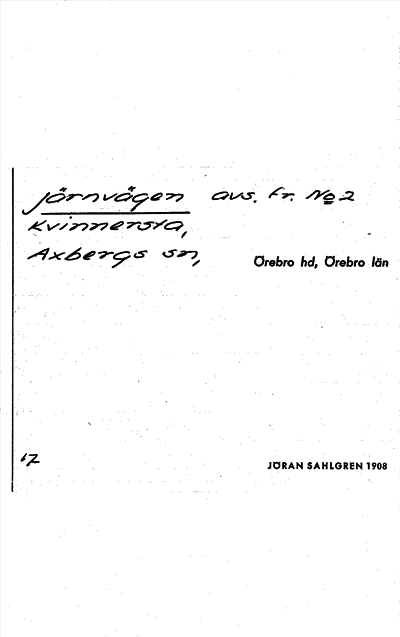 Järnvägen avs. fr. No 2
Kvinnersta,
Axbergs sn,
Örebro hd, Örebro län
17
JÖRAN SAHLGREN 1908